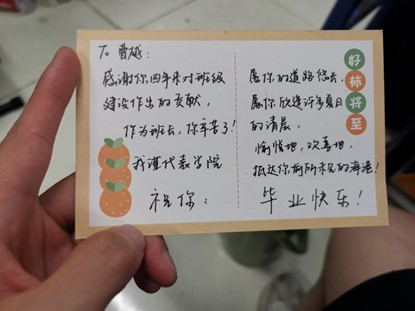 To 曹越:
感谢你四年来对班级
建设作出的贡献,
作为班长,你辛苦了!
我谨代表学院
祝你:
愿你的道路悠长,
愿你欣逢许多夏日
的清晨
愉悦地,欢喜地
抵达你前所未见的海港!
毕业快乐!
好柿将至